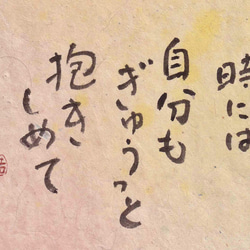 時には
自分も
ぎゅうっと
抱き
しめて